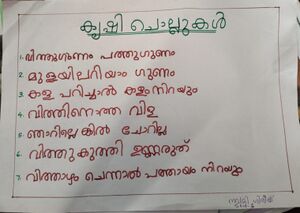 കൃഷി ചൊല്ലുകൾ
1. വിത്തുഗുണം പത്തുഗുണം
2. മുളയിലറിയാം ഗുണം
3. കള പറിച്ചാൽ കളം നിറയും
4. വിത്തിനൊത്ത വിള
5. ഞാറില്ലെങ്കിൽ ചോറില്ല
6. വിത്തു കുത്തി ഉണ്ണരുത്
7. വിത്താഴം ചെന്നാൽ പത്തായം നിറയും